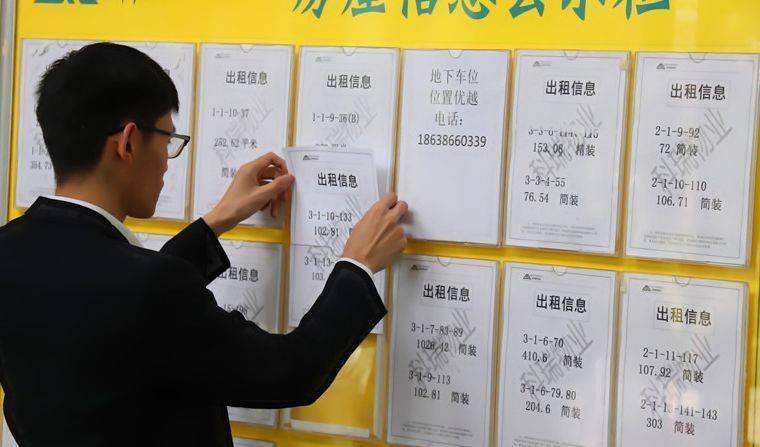 房屋信息公示栏
出租信息
1-1-10-37
252.62 平米
出租信息
1-1-9-36(B)
地下车位
位置优越
电话：
18638660339
出租信息
153.08 精装
3-3-4-55
76.54 简装
出租信息
2-1-9-92
72 简装
2-1-10-110
106.71 简装
出租信息
3-1-10-133
102.81 简装
出租信息
3-1-7-83-89
简装
3-1-9-113
102.81 简装
出租信息
3-1-6-70
410.6 简装
3-1-6-79.80
204.6 简装
出租信息
2-1-11-117
107.92 简装
2-1-13-141-143
303 简装